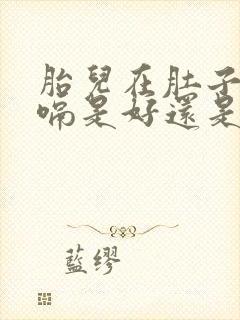 胎兒在肚子
嗝是好還是
藍繆